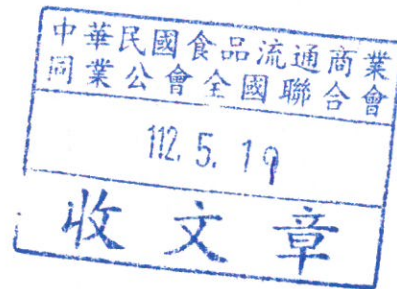 中華民國食品流通商業
同業公會全國聯合會
112. 5. 19
收文章